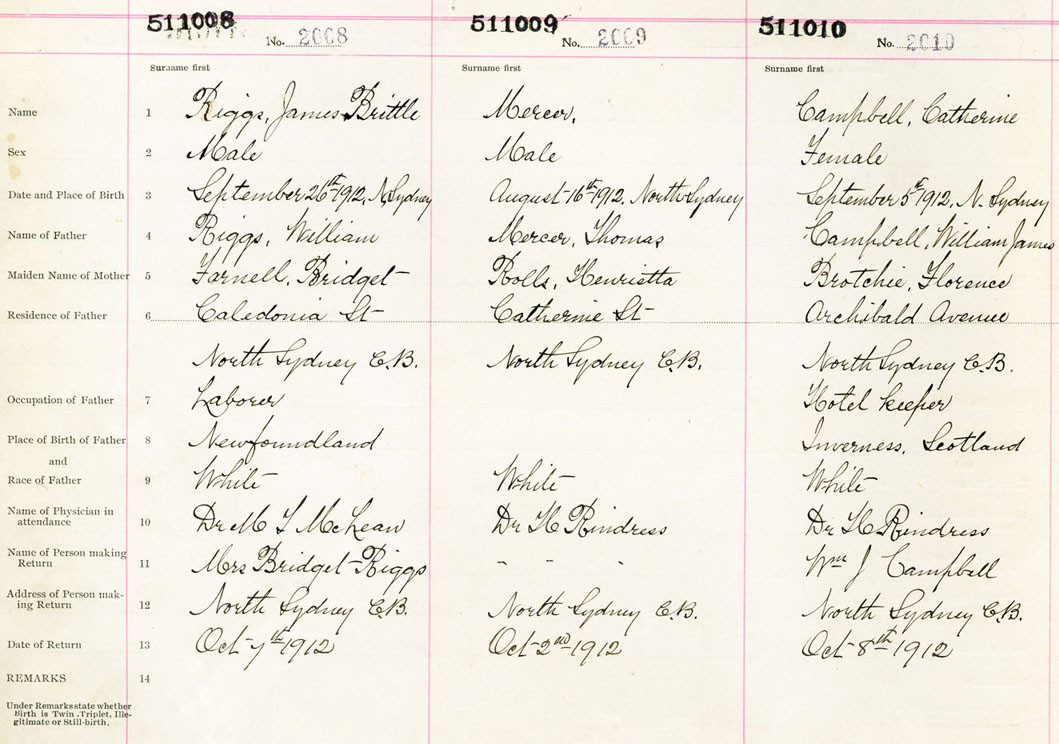 511008 511009 511010
No. 2008 No. 2009 No. 2010
Surname first Surname first Surname first
Name 1 Riggs, James Brittle Mercer, Campbell, Catherine
Sex 2 Male Male Female
Date and Place of Birth 3 September 26th 1912, N, Sydney August 16th 1912, North Sydney September 5th 1912, N. Sydney
Name of Father 4 Riggs, William Mercer, Thomas Campbell, William James
Maiden Name of Mother 5 Farnell, Bridget Rolls, Henrietta Brotchie, Florence
Residence of Father 6 Caledonia St Catherine St Archibald Avenue
North Sydney C.B. North Sydney C.B. North Sydney C.B.
Occupation of Father 7 Laborer Hotel keeper
Place of Birth of Father 8 Newfoundland Inverness, Scotland
and
Race of Father 9 White White White
Name of Physician in
attendance 10 Dr M McLean Dr H Rindress Dr H Rindress
Name of Person making
Return 11 Mrs Bridget Riggs - - - Wm J Campbell
Address of Person mak-
ing Return 12 North Sydney C.B. North Sydney C.B. North Sydney C.B.
Date of Return 13 Oct 7th 1912 Oct 2nd 1912 Oct 8th 1912
REMARKS 14
Under Remarks state whether
Birth is Twin, Triplet, Ille-
gitimate or Still-birth.